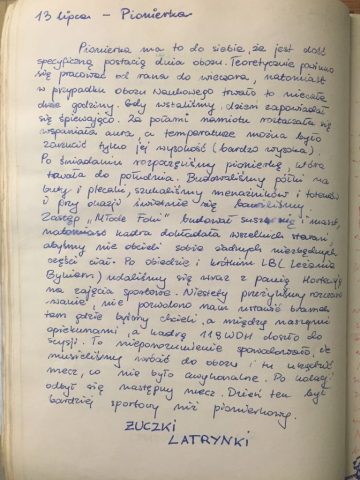 13 lipca - Pionierka
Pionierka ma to do siebie, że jest dość
specyficzną postacią dnia obozu. Teoretycznie powinno
się pracować od rana do wieczora, natomiast
w przypadku obozu Naukowego trwało to niecałe
dwie godziny. Gdy wstaliśmy, dzień zapowiadał
się śpiewająco. Za połami namiotu roztaczała się
wspaniała aura, a temperaturze można było
zarzucić tylko jej wysokość (bardzo wysoka)
Po śniadaniu rozpoczęliśmy pionierkę, która
trwała do południa. Budowaliśmy półki na
buty i plecaki, szukaliśmy menażników i totemów
i przy okazji świetnie się bawiliśmy.
Zastęp "Młode Foki" budował suszarnię i maszt,
natomiast kadra dokładała wszelkich starań,
abyśmy nie obcięli sobie żadnych niezbędnych
części ciał. Po obiedzie i krótkim LB (Leżenia
Byniem) udaliśmy się wraz z panią Hortensją
na zajęcia sportowe. Niestety przeżyliśmy rozczaro-
wanie, nie pozwolono nam ustawić bramek
tam gdzie byśmy chcieli, a między naszymi
opiekunami, a kadrą 118WDH doszło do
scysji. To nieporozumienie spowodowało, że
musieliśmy wrócić do obozu i tu urządzić
mecz, co nie było wykonalne. Po kolacji
odbył się następny mecz. Dzień ten był
bardziej sportowy niż pionierkowy.
ŻUCZKI
LATRYNKI